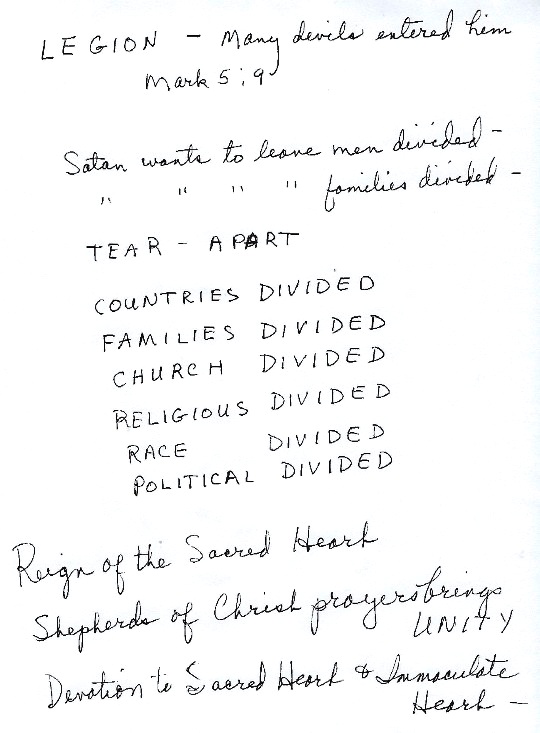 LEGION - Many devils entered him
Mark 5:9
Satan wants to leave men divided -
" " " " families divided -
TEAR - APART
COUNTRIES DIVIDED
FAMILIES DIVIDED
CHURCH DIVIDED
RELIGIOUS DIVIDED
RACE DIVIDED
POLITICAL DIVIDED
Reign of the Sacred Heart
Shepherds of Christ prayers brings
UNITY
Devotion to Sacred Heart & Immaculate
Heart -